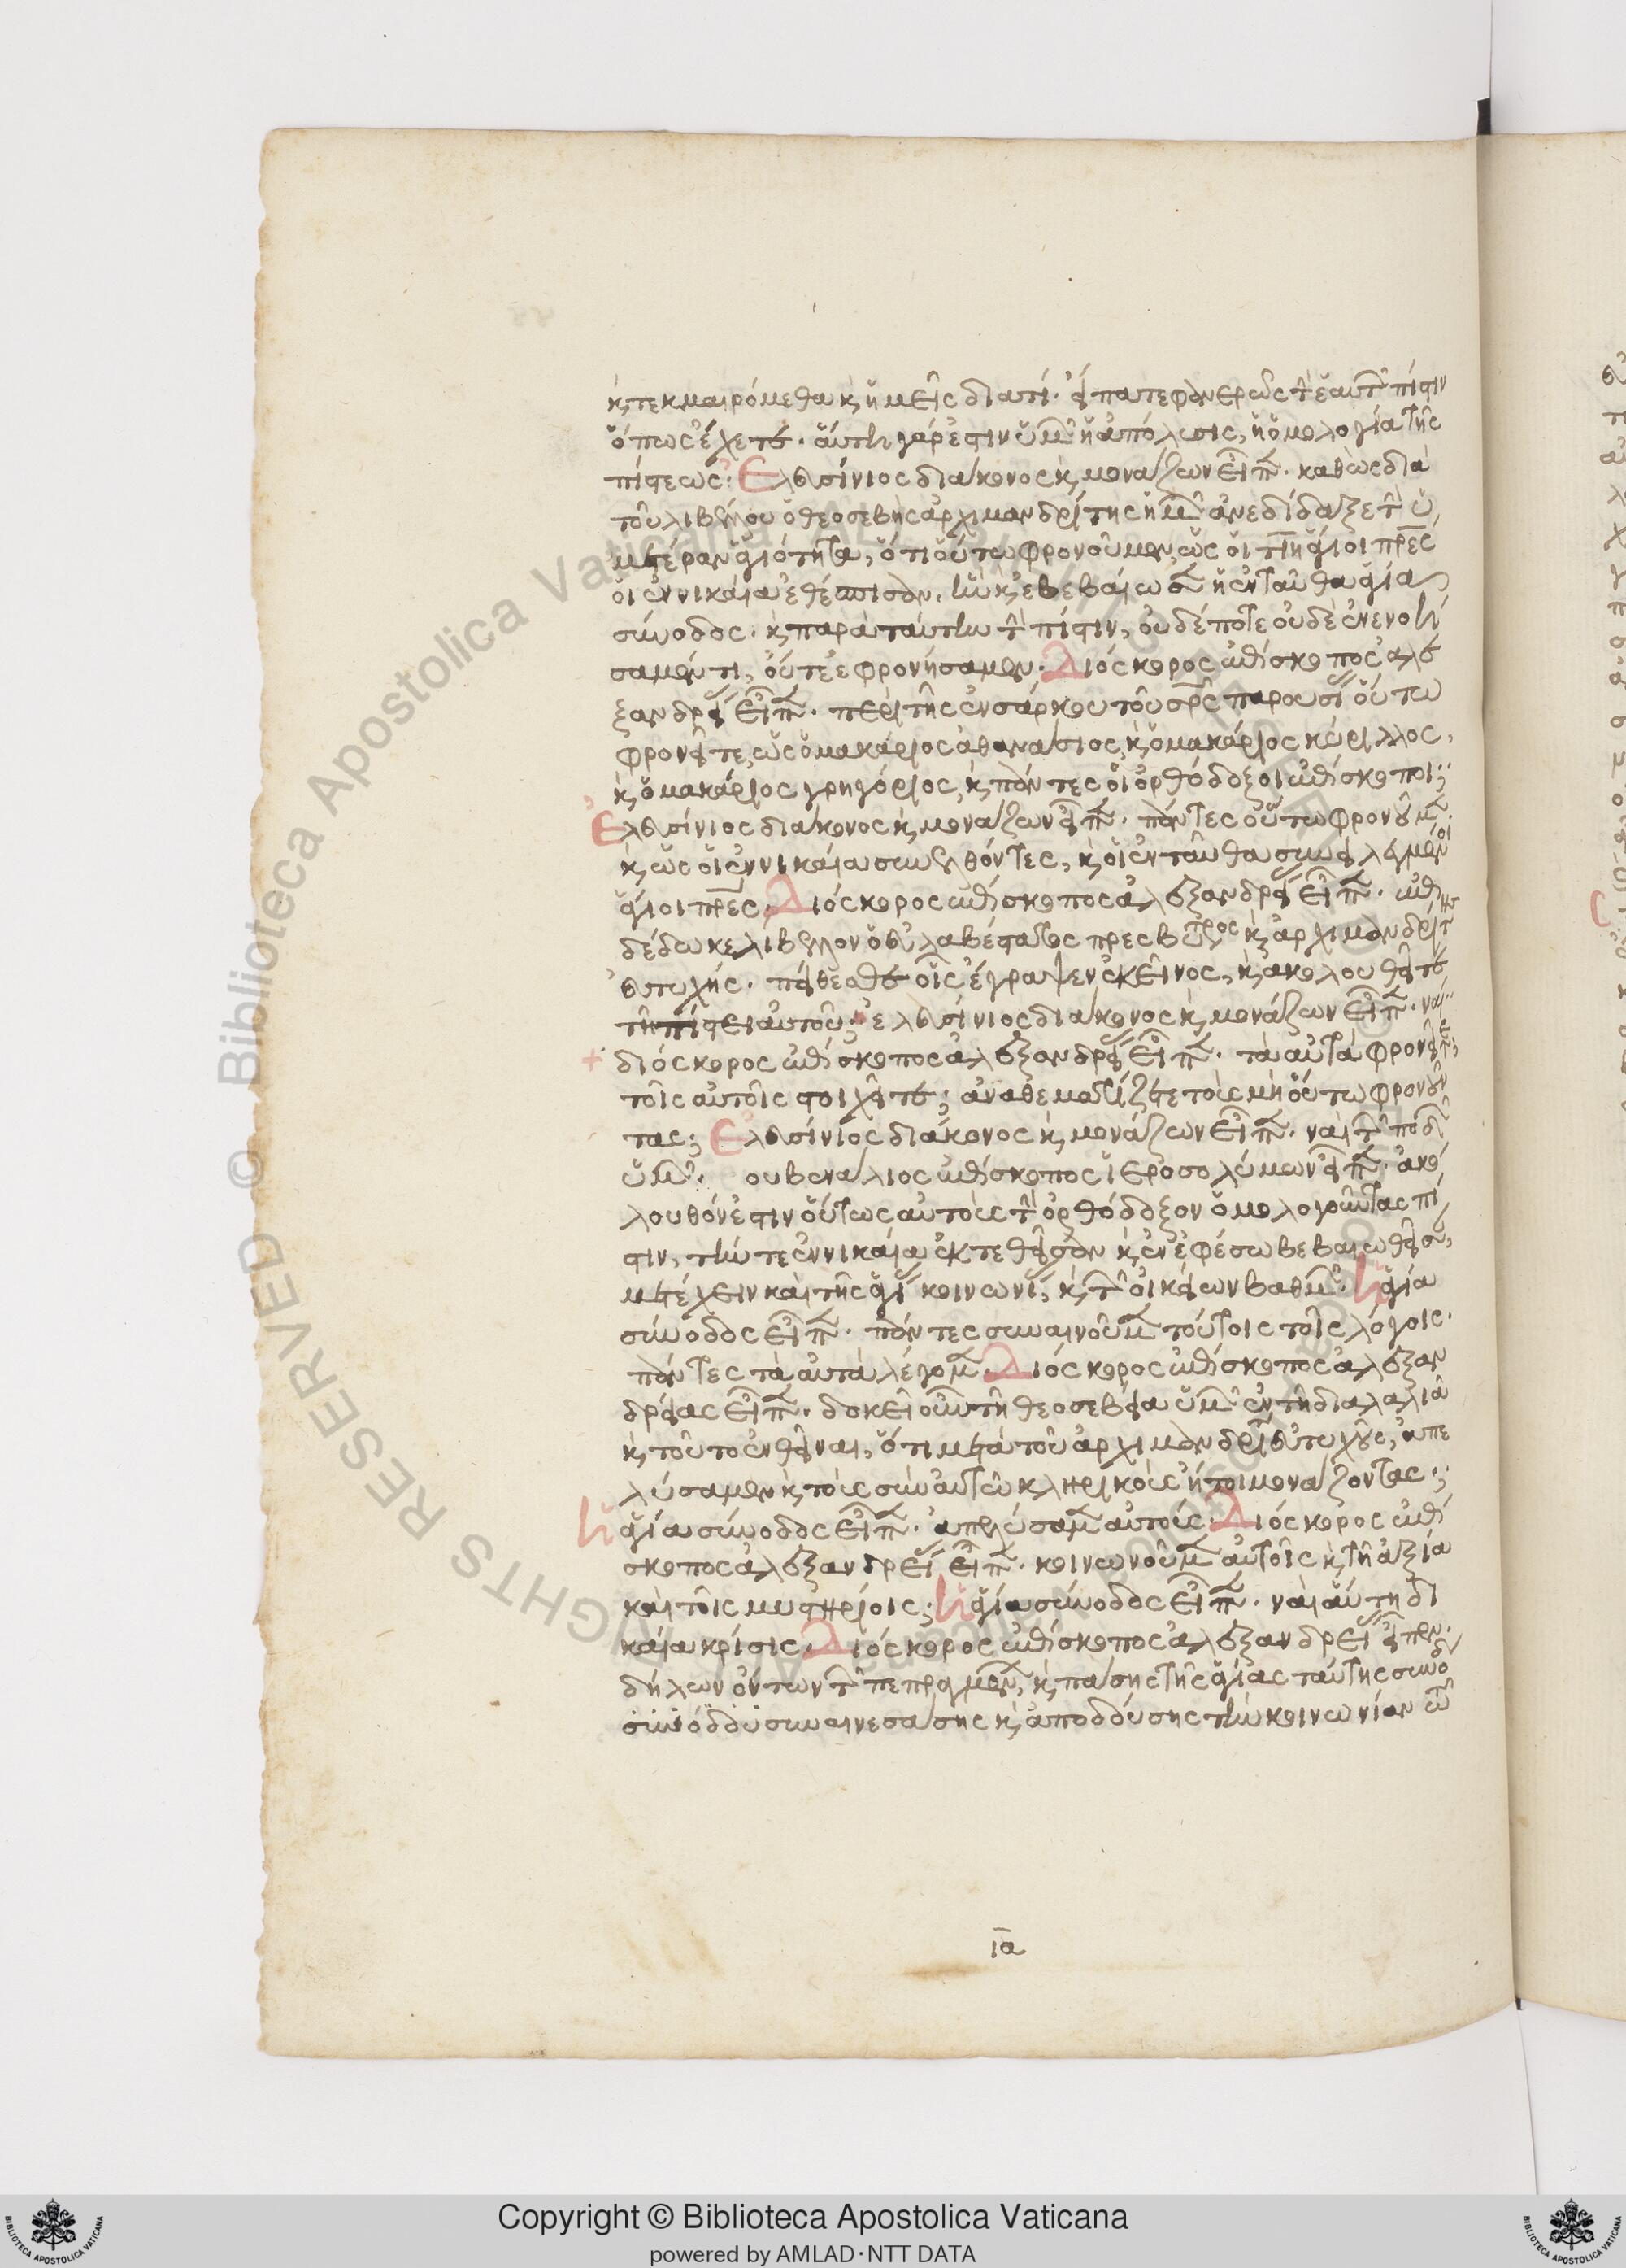 κ τεκμαιρόμεθα κ ἡμεῖς διατί. εἴπατε φανερῶς τ ἑαυτ πίστιν
ὅπως ἔχετε. αὕτη γάρ ἐστιν ὑμ ἡ ἀπόλυσις, ἡ ὁμολογία τῆς
πίστεως: Ἐλευσίνιος διάκονος κ μονάζων εἶπ. καθὼς διὰ
τοῦ λιβέλλου ὁ θεοσεβὴς ἀρχιμανδρίτης ἡμ ἀνεδίδαξε τ ὑ
μετέραν ἁγιότητα, ὅτι οὕτω φρονοῦμεν, ὡς οἱ ἅγιοι πρες
οἱ ἐν νικαία ἐθέσπισαν. ἣν κ ἐβεβαίωσ ἡ ἐνταῦθα ἁγία
σύνοδος. κ παρὰ ταύτην τ πίστιν, οὐδέποτε οὐδὲ ἐνενοή
σαμέν τι, οὔτε ἐφρονήσαμεν. Διόσκορος ἐπίσκοπος ἀλε
ξανδρεί εἶπ. περὶ τῆς ἐνσάρκου τοῦ σρς παρουσί οὕτω
φρονεῖτε, ὡς ὁ μακάριος ἀθανάσιος, κ ὁ μακάριος κύριλλος,
κ ὁ μακάριος γρηγόριος, κ πάντες οἱ ὀρθόδοξοι ἐπίσκοποι;
Ἐλευσίνιος διάκονος κ μονάζων εἶπ. πάντες οὕτω φρονοῦμ.
κ ὡς οἱ ἐν νικαία συνελθόντες, κ οἱ ἐνταῦθα συνειλεγμένοι
ἅγιοι πρες. Διόσκορος ἐπίσκοπος ἀλεξανδρεί εἶπ. ἐπι
δέδωκε λίβελλον ὁ εὐλαβέστατος πρεσβύτερος κ ἀρχιμανδρίτ
εὐτυχής. πείθεσθε οἷς ἔγραψεν ἐκεῖνος, κ ἀκολουθεῖτε
τῆ πίστει αὐτοῦ; ἐλευσίνιος διάκονος κ μονάζων εἶπ. ναί
διόσκορος ἐπίσκοπος ἀλεξανδρεί εἶπ. τὰ αὐτὰ φρονεῖτε,
τοῖς αὐτοῖς στοιχεῖτε; ἀναθεματίζετε τοὺς μὴ οὕτω φρονοῦν
τας; Ἐλευσίνιος διάκονος κ μονάζων εἶπ. ναὶ τ ποδ
ὑμ. ουβενάλιος ἐπίσκοπος ἱεροσολύμων εἶπ. ἀκό
λουθόν ἐστιν οὕτως αὐτοὺς τ ὀρθόδοξον ὁμολογοῦντας πί
στιν, τήν τε ἐν νικαία ἐκτεθεῖσαν κ ἐν ἐφέσω βεβαιωθεῖσ,
μετέχειν καὶ τῆς ἁγί κοινωνί, κ τ οἰκείων βαθμ. Ἡ ἁγία
σύνοδος εἶπ. πάντες συναινοῦμ τούτοις τοῖς λόγοις.
πάντες τὰ αὐτὰ λέγομ. Διόσκορος ἐπίσκοπος ἀλεξαν
δρείας εἶπ. δοκεῖ οὖν τῆ θεοσεβεία ὑμ ἐν τῆ διαλαλιᾶ
κ τοῦτο ἐνθεῖναι, ὅτι μετὰ τοῦ ἀρχιμανδρί εὐτυχοῦς, ἀπε
λύσαμεν κ τοὺς σὺν αὐτῶ κληρικοὺς ἤτοι μονάζοντας;
Ἡ ἁγία σύνοδος εἶπ. ἀπελύσαμ αὐτούς. Διόσκορος ἐπί
σκοπος ἀλεξανδρεί εἶπ. κοινωνοῦμ αὐτοῖς κ τῆ ἀξία
καὶ τοῖς μυστηρίοις; Ἡ ἁγία σύνοδος εἶπ. ναὶ αὕτη δι
καία κρίσις. Διόσκορος ἐπίσκοπος ἀλεξανδρεί εἶπεν.
δήλων ὄντων τ πεπραγμέν, κ πάσης τῆς ἁγίας ταύτης συνόδου
συνόδου συναινεσάσης κ ἀποδούσης τὴν κοινωνίαν
ια
© Biblioteca Apostolica Vaticana ALL RIGHTS RESERVED
Copyright © Biblioteca Apostolica Vaticana
powered by AMLAD·NTT DATA